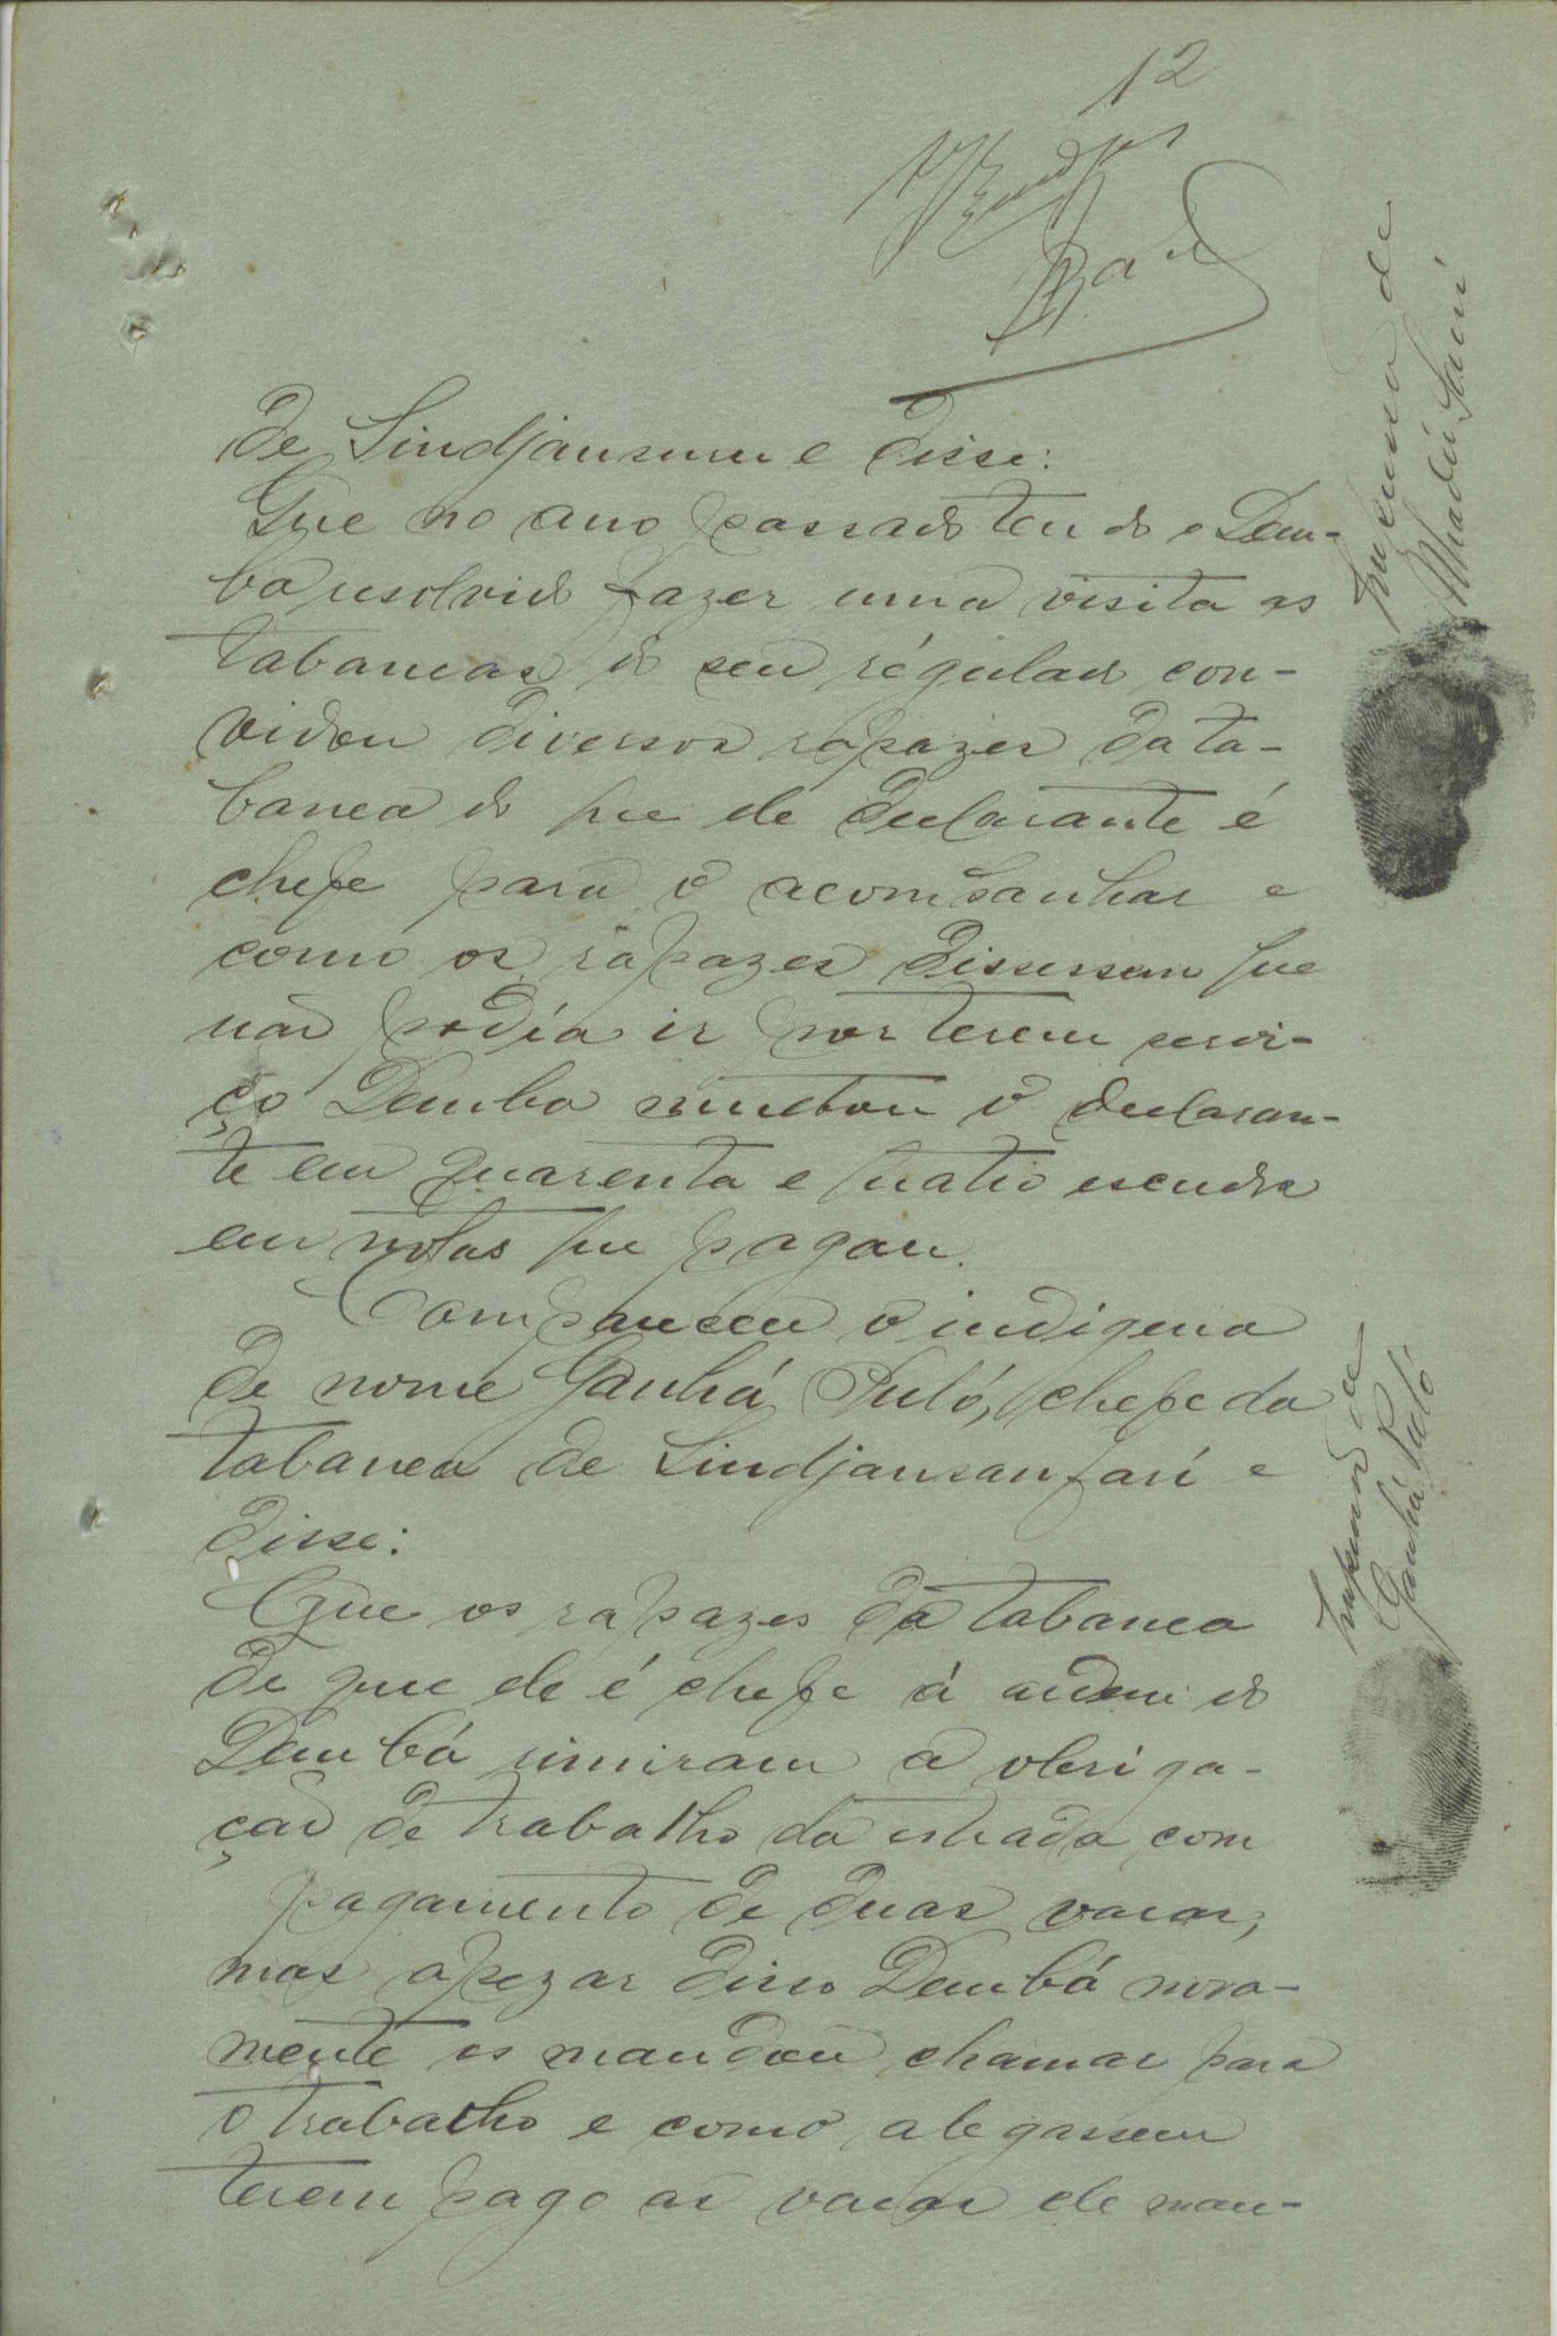 12
de Sindjansum e disse:
Que no ano passado tendo o Dem-
ba resolvido fazer uma visita as
tabancas do seu régulado con-
vidou diversos rapazes da ta-
banca do que ele declarante é
chefe para o acompanhar e
como os rapazes dissessem que
não podia ir por terem servi-
ço Demba multou o declaran-
te em quarenta e quatro escudos
em notas que pagou.
Compareceu o indigena
de nome Ganhá Puló, chefe da
tabanca de Sindjansanfari e
disse:
Que os rapazes da tabanca
de que ele é chefe á ordem do
Dembá remiram a obriga-
ção de trabalho da estrada com
pagamento de duas vacas,
mas apezar disso Dembá nova-
mente os mandou chamar para
o trabalho e como alegassem
terem pago as vacas ele man-
Impressão de
Mamadú Sami
Impressão de
Ganhá Puló